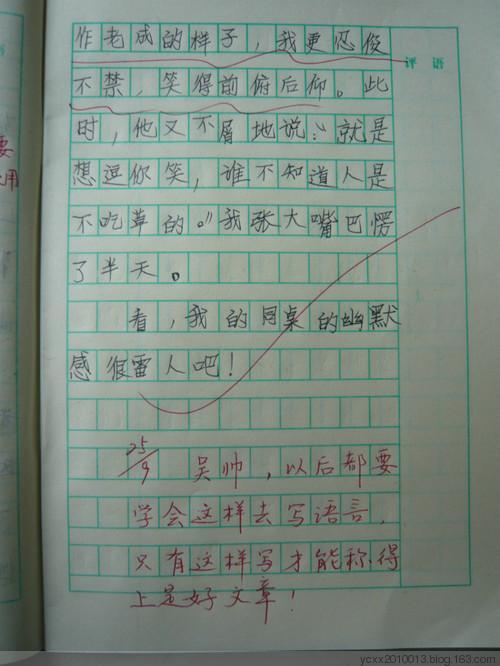 作老成的样子，我更忍俊
评语
不禁，笑得前俯后仰。此
时，他又不屑地说：“就是
想逗你笑，谁不知道人是
不吃草的。”我张大嘴巴愣
了半天。
看，我的同桌的幽默
感很雷人吧！
25/9
吴帅，以后都要
学会这样去写语言，
只有这样写才能称得
上是好文章！
要
用
ycxx2010013.blog.163.com